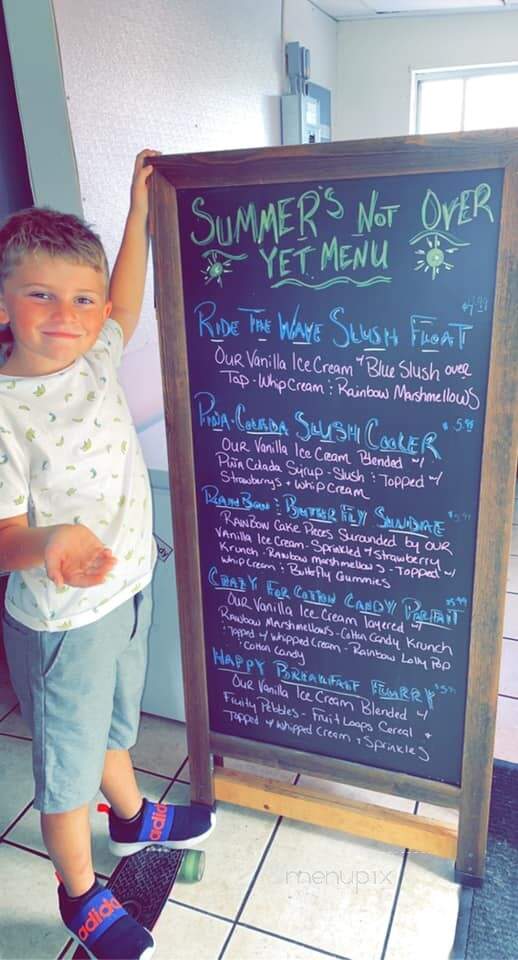 SUMMER'S NOT OVER
YET MENU
RIDE THE WAVE SLUSH FLOAT
OUR Vanilla Ice Cream w/ Blue Slush over
Top - Whip Cream : Rainbow Marshmellows
PINA-COLADA SLUSH COOLER 5.99
OUR Vanilla Ice Cream Blended w/
Pina Colada Syrup - Slush : Topped w/
Strawberrys + Whip Cream
RAINBOW : BUTTERFLY SUNDAE
RAINBOW Cake Pieces Surounded by OUR
Vanilla Ice Cream - Sprinkled w/ Strawberry
Krunch - Rainbow marshmellows - Topped w/
Whip Cream : Butterfly Gummies
CRAZY FOR COTTON CANDY PARFAIT 5.99
OUR Vanilla Ice Cream layered w/
Rainbow Marshmellows - Cotton Candy Krunch
: Topped w/ whipped Cream - Rainbow Lolly Pop
: Cotton Candy
HAPPY BREAKFAST FLURRY
OUR Vanilla Ice Cream Blended w/
Fruity Pebbles - Fruit Loops Cereal +
Topped w/ whipped Cream + Sprinkles
adidas
adidas
menupix